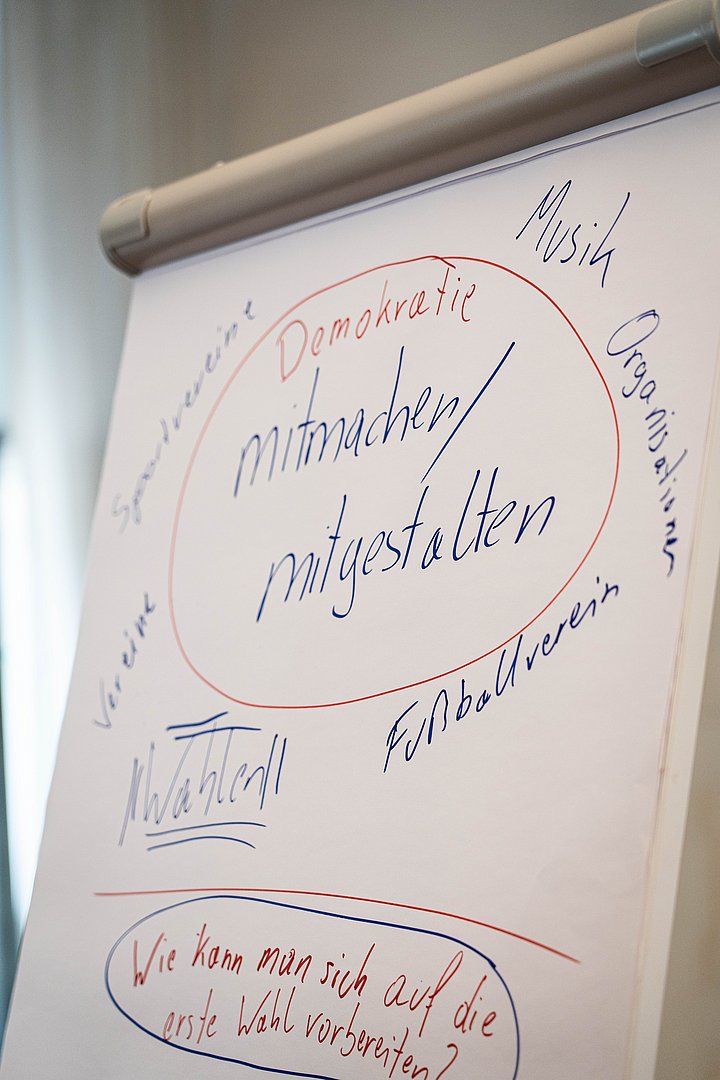 Musik
Demokratie
mitmachen/
mitgestalten
Organisationen
Sportvereine
Vereine
Fußballverein
Wahlen
Wie kann man sich auf die
erste Wahl vorbereiten?